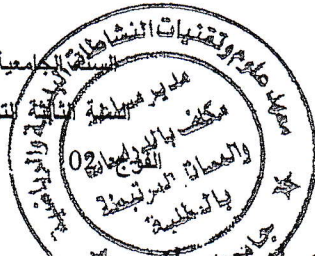 معهد علوم وتقنيات النشاطات البدنية والرياضية
السنة الجامعية
السنة الثانية
الفوج 02
مدير مساعد
مكلف بالدراسات
والمسائل المرتبطة
بالطلبة